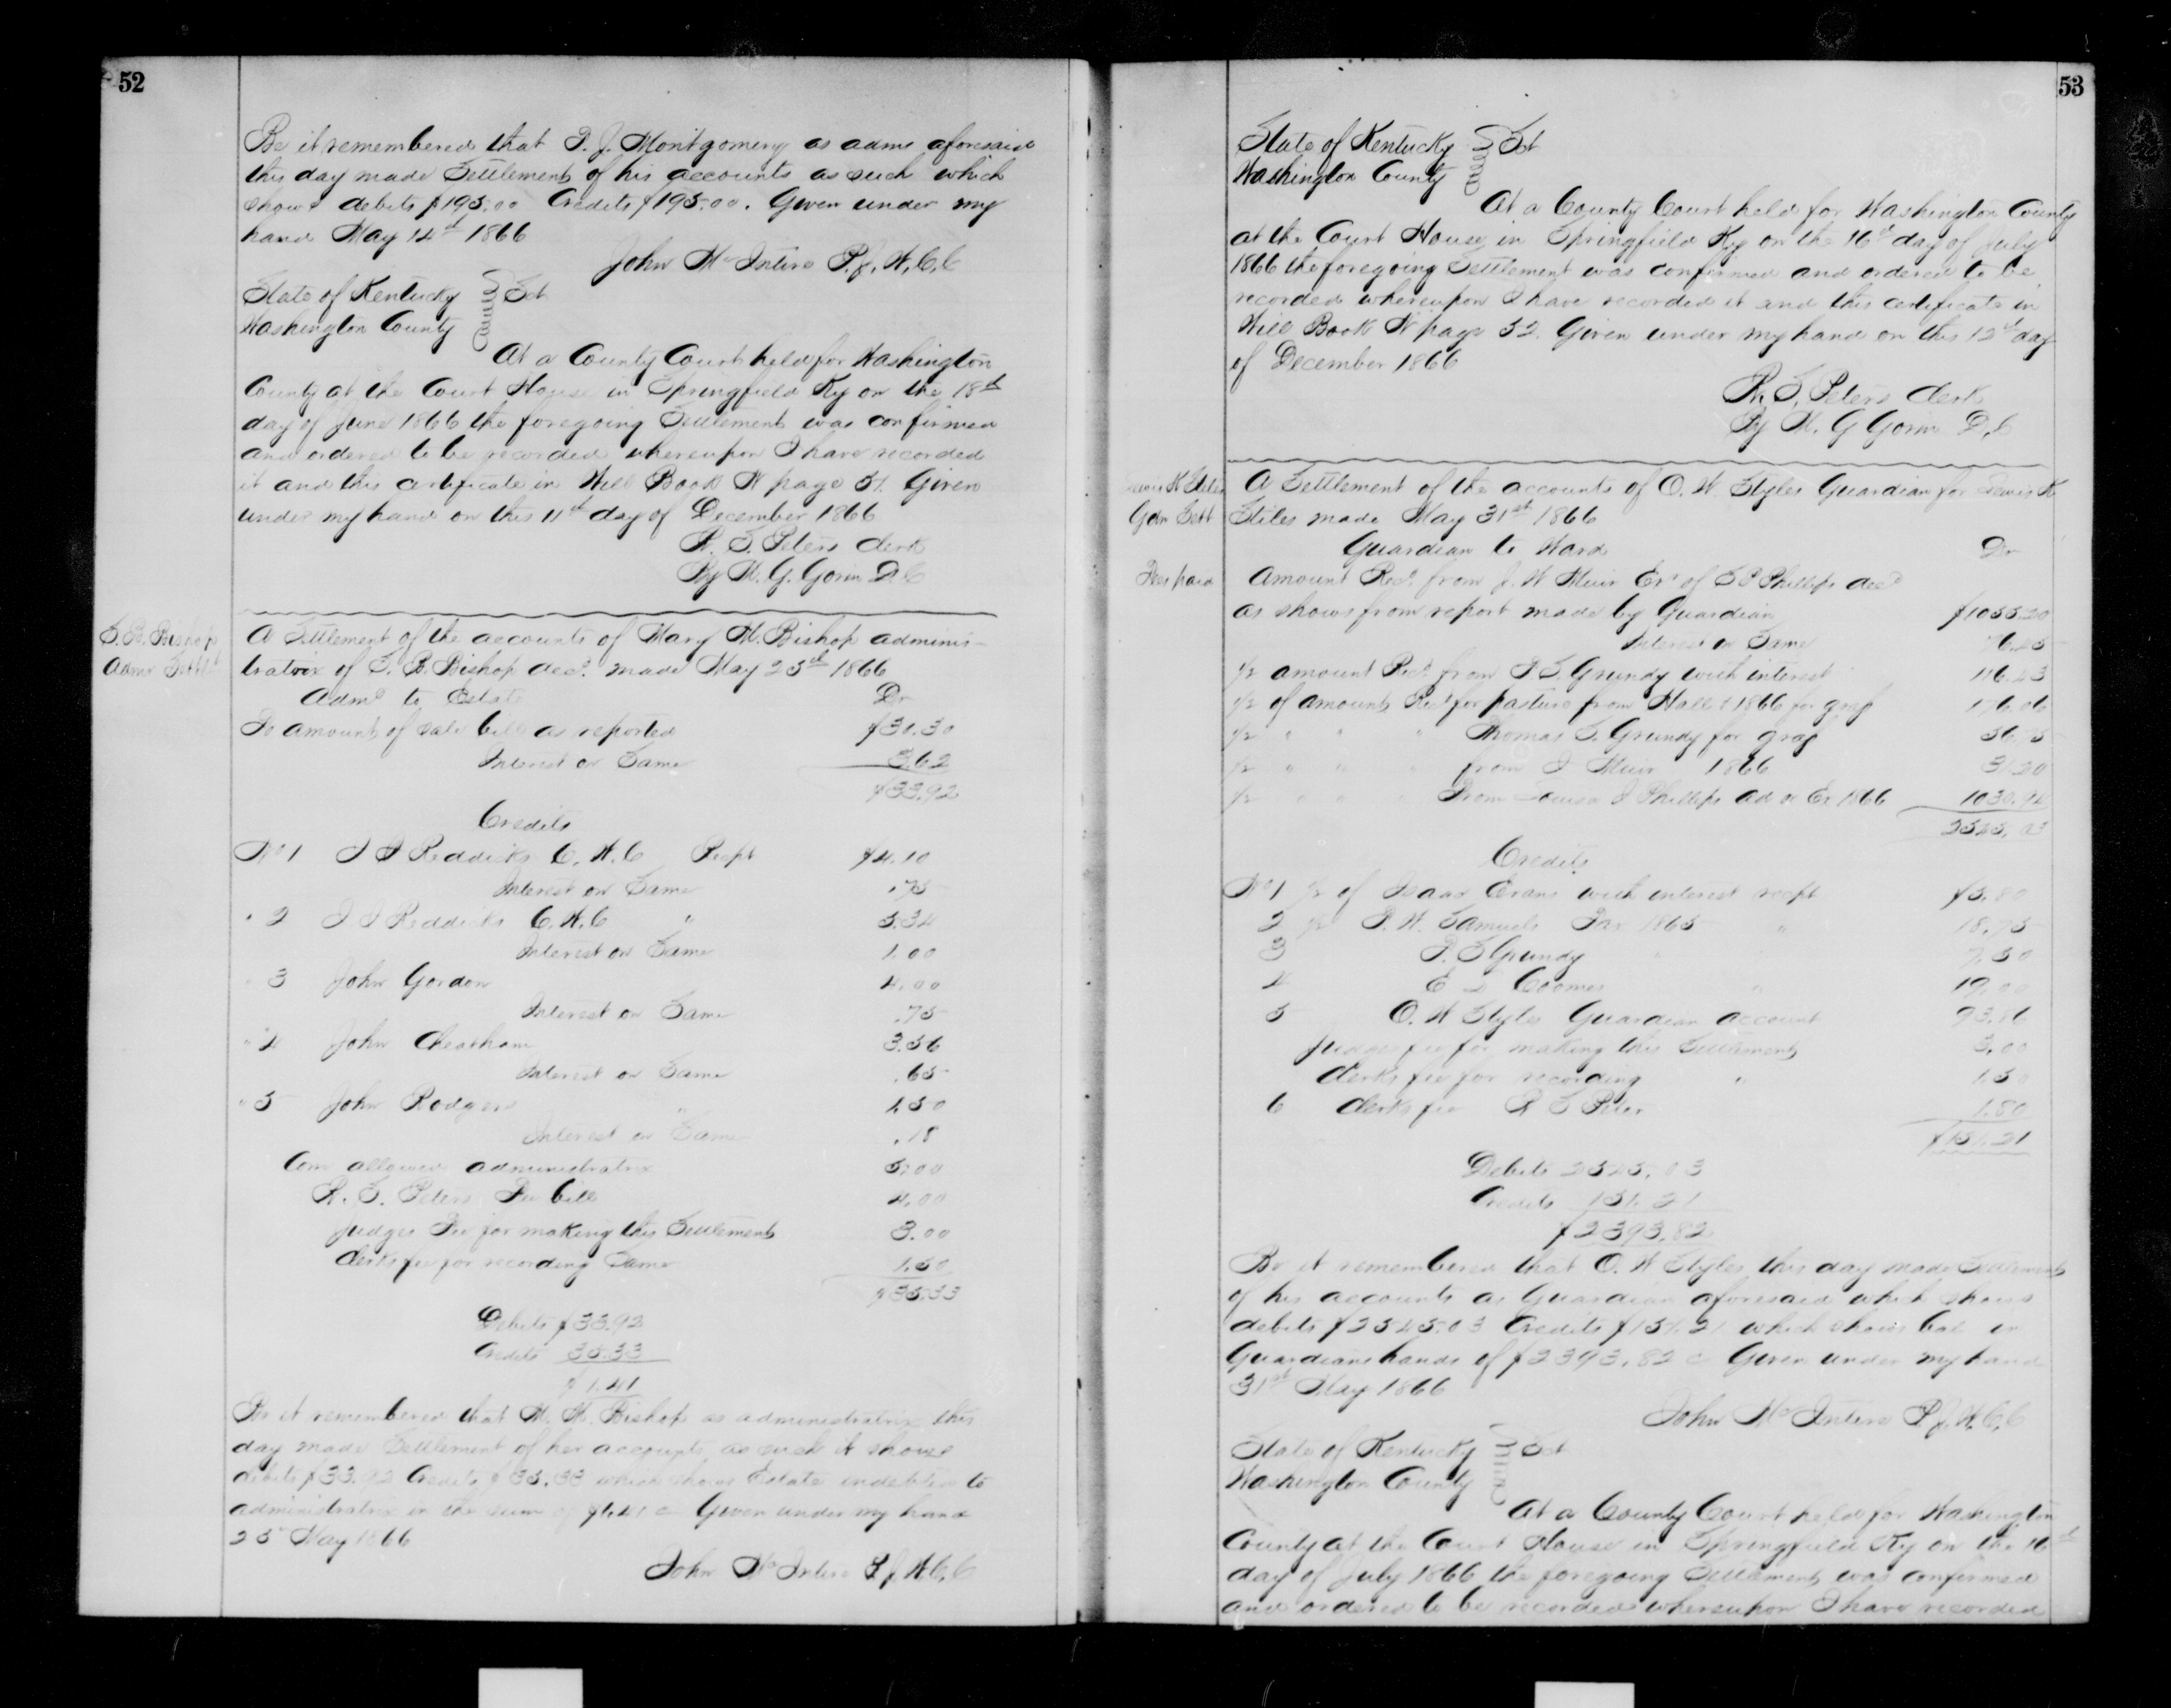 52
Be it remembered that P. J. Montgomery as adms aforesaid
this day made Settlement of his accounts as such which
shows debits $195.00 Credits $195.00. Given under my
hand May 14th 1866
John McIntire P. J. W. C. C
State of Kentucky Sct
Washington County
At a County Court held for Washington
County at the Court House in Springfield Ky on the 18th
day of June 1866 the foregoing Settlement was confirmed
and ordered to be recorded whereupon I have recorded
it and this certificate in Will Book N page 51. Given
under my hand on this 11th day of December 1866
R. S. Peters Clerk
By W. G. Gorin D. C
S. B. Bishop
Admr Settlt
A Settlement of the accounts of Mary M. Bishop adminis-
tratrix of S. B. Bishop decd. made May 25th 1866
Admx to Estate Dr
To amount of sale bill as reported $30.30
Interest on Same 3.62
$33.92
Credits
No 1 Reddicks C. W. C Recpt $4.10
Interest on Same .75
" 2 Reddicks C. W. C " 5.34
Interest on Same 1.00
" 3 John Gordon 4.00
Interest on Same .75
" 4 John Cheatham 3.56
Interest on Same .65
" 5 John Rodgers 1.50
Interest on Same .18
Com allowed administratrix 5.00
R. S. Peters Fee bill 4.00
Judges Fee for making this Settlement 3.00
Clerks fee for recording Same 1.50
$35.33
Debits $33.92
Credits 35.33
$1.41
Be it remembered that M. M. Bishop as administratrix this
day made Settlement of her accounts as such it shows
debits $33.92 Credits $35.33 which shows Estate indebted to
administratrix in the sum of $1.41 c Given under my hand
25 May 1866
John McIntire P J W. C. C
53
State of Kentucky Sct
Washington County
At a County Court held for Washington County
at the Court House in Springfield Ky on the 16th day of July
1866 the foregoing Settlement was confirmed and ordered to be
recorded whereupon I have recorded it and this certificate in
Will Book N page 52. Given under my hand on this 12th day
of December 1866
R. S. Peters Clerk
By W. G Gorin D. C
Lewis K Stiles
Gdn Sett
Fees paid
A Settlement of the accounts of O. W. Styles Guardian for Lewis K
Stiles made May 31st 1866
Guardian to Ward Dr
Amount Recd. from J. W Muir Exr of Phillips decd
as shows from report made by Guardian $1055.20
Interest on Same 76.25
1/2 amount Recd. from Grundy with interest 116.23
1/2 of amount Recd for pasture from Hall 1866 for grass 176.06
1/2 " " " Thomas S. Grundy for grass
1/2 " " " from Muir 1866 31.20
1/2 " " " From Louisa Phillips ad or Ex 1866 1030.94
2545.03
Credits
No 1 1/2 of Isaac Evans with interest recpt $5.80
2 1/2 P. W. Samuels Tax 1865 " 18.75
3 Grundy " 7.50
4 E Coomes " 19.00
5 O. W Styles Guardian account 93.86
Judges fee for making this Settlement 3.00
Clerks fee for recording " 1.50
6 Clerks fee R S Peter 1.80
$151.21
Debits 2545.03
Credits 151.21
$2393.82
Be it remembered that O. W Styles this day made Settlement
of his accounts as Guardian aforesaid which shows
debits $2545.03 Credits $151.21 which shows bal in
Guardians hands of $2393.82 c Given under my hand
31st May 1866
John McIntire P. J. W. C. C
State of Kentucky Sct
Washington County
At a County Court held for Washington
County at the Court House in Springfield Ky on the 16th
day of July 1866 the foregoing Settlement was confirmed
and ordered to be recorded whereupon I have recorded